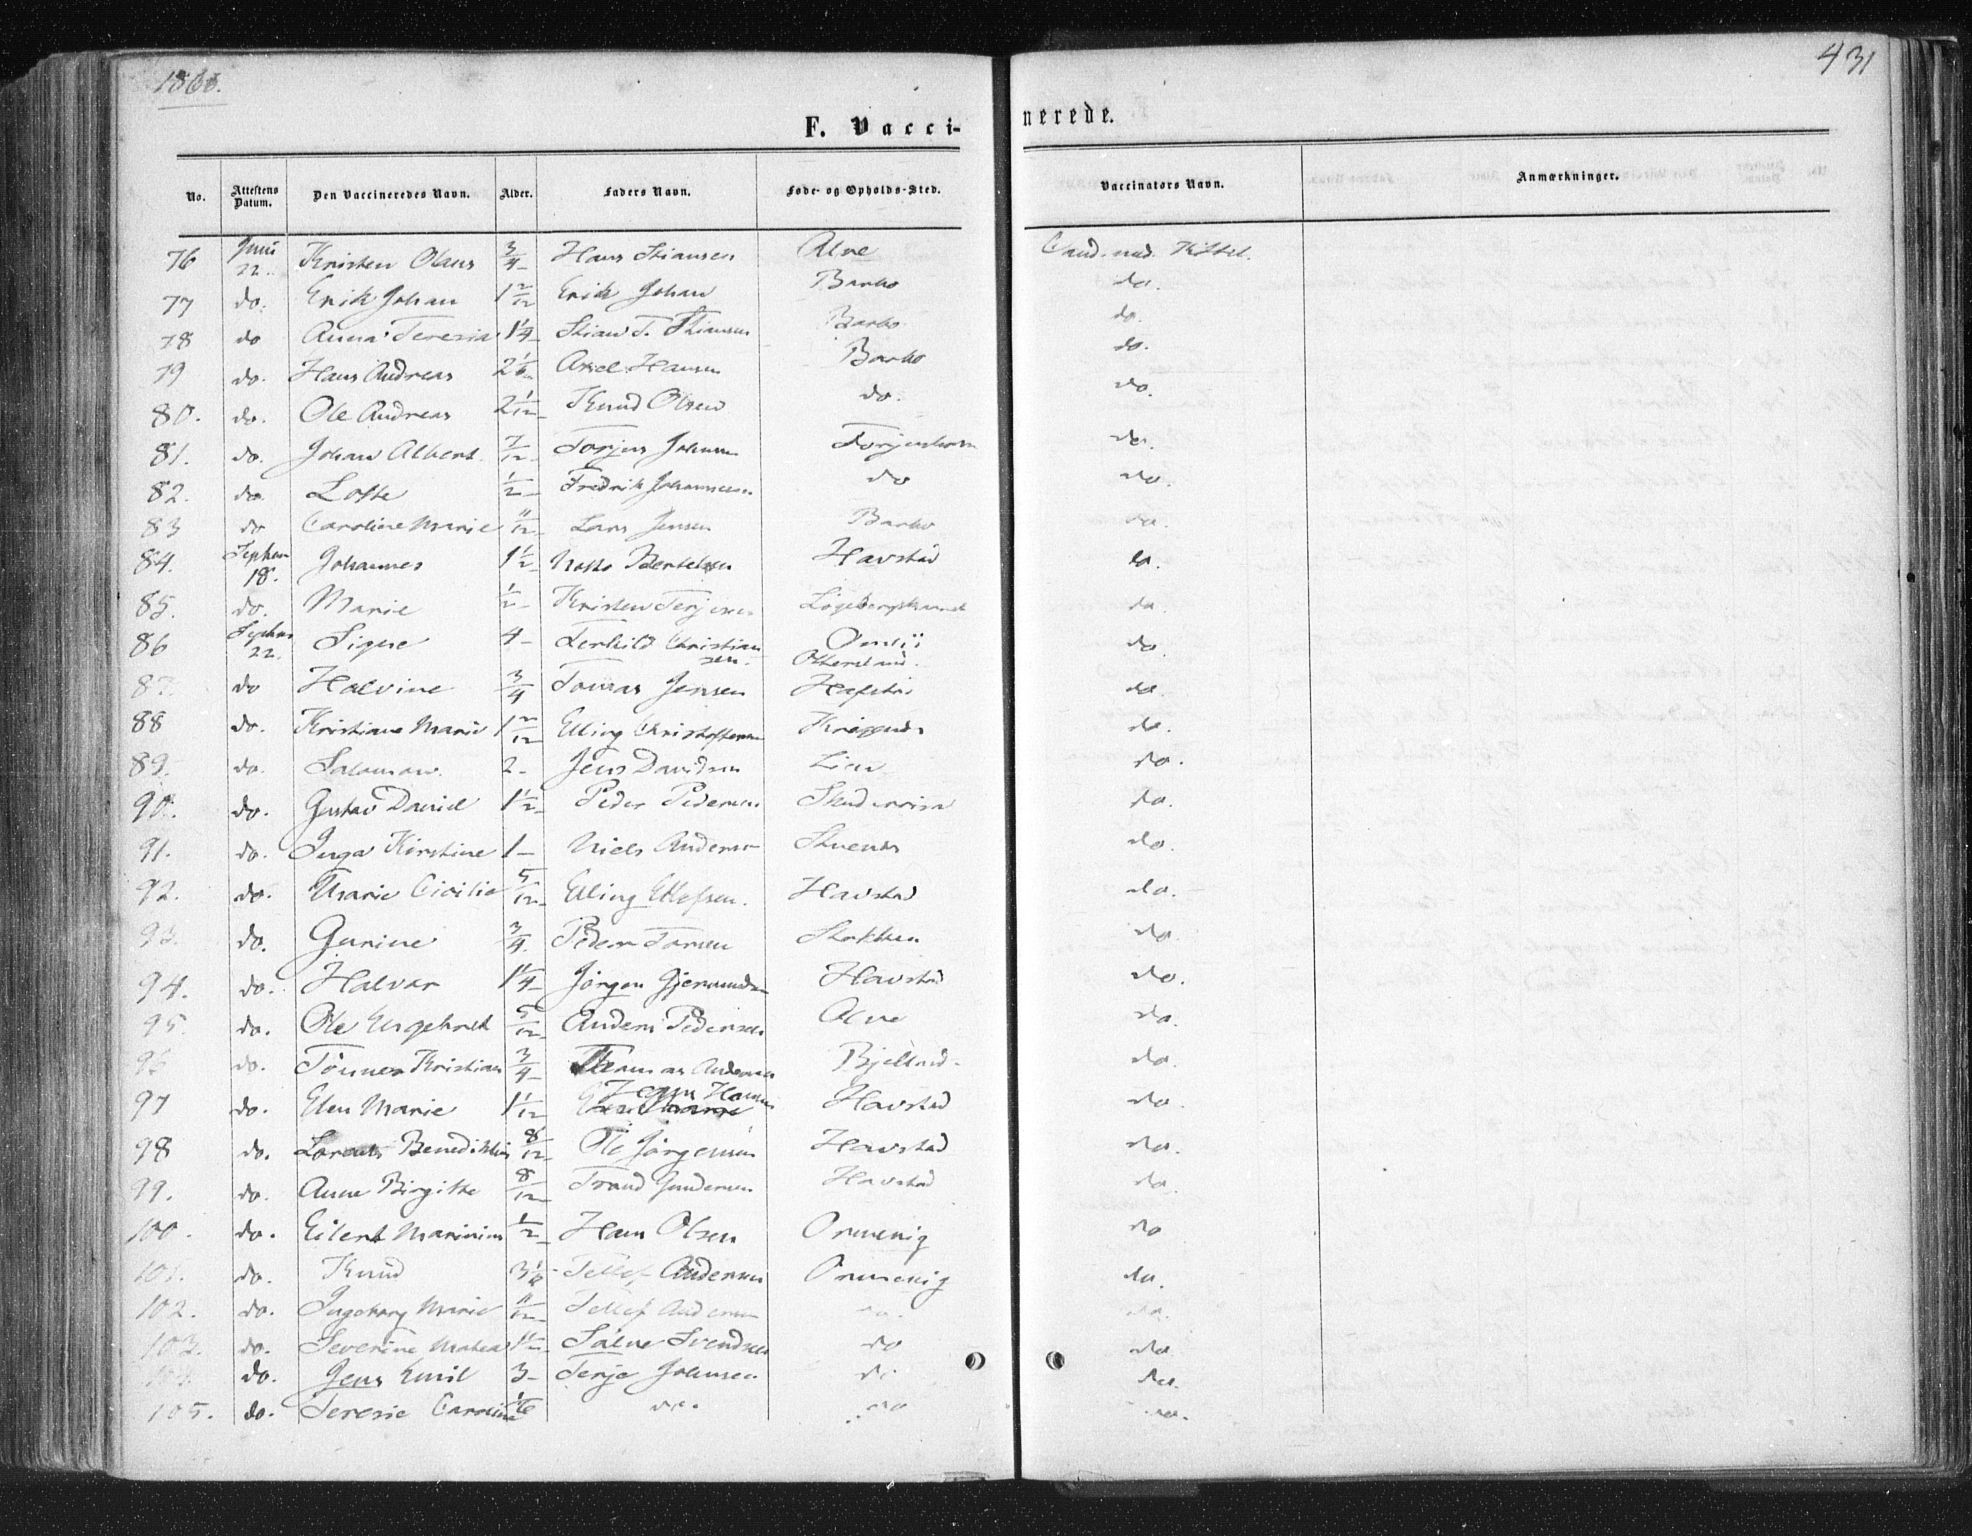 431
F. Vacci-nerede.
No. Attestens Datum. Den Vaccineredes Navn. Alder. Faders Navn. Føde- og Opholds-Sted. Vaccinators Navn. Anmærkninger.
76 Juni 22. Kristen Olaus 3/4 - Hans Stiansen Alve Cand. med.
77 do. Erik Johan 1 2/12 Erik Johan Barbo do.
78 do Anna Teresia 1 1/4 - Stian T. Stiansen Barbo do.
79 do. Hans Andreas 2 1/6 Axel Hansen Barbo do.
80. do. Ole Andreas 2 1/12 - Knud Olsen do. do.
81. do. Johan Albert. 7/12 - Torjus Johnsen do.
82. do. Lotte 1/2 - Fredrik Johannesen do do.
83 do Caroline Marie 11/12 Lars Jensen Barbo do.
84. Septem 18. Johannes 1 1/2 - Bertelsen Havstad do.
85. do. Marie 1/2 - Kristen Terjesen do.
86 Septem 22. Signe 4 - Terkild Christian
sen. do.
87. do Halvine 3/4 Tomas Jensen Hafstad do.
88 do. Kristiane Marie 1 2/12 Elling Christoffersen do.
89. do. Salamon. 2 - Jens Davidsen Lien do.
90. do. Gustav Daniel 1 1/2 - Peder Pedersen do.
91. do. Inga Kirstine 1 - Niels Andersen do.
92. do. Marie Cicilie 5/12 - Elling Ellefsen. Havstad do.
93. do. Gurine 3/4. Peder Torsen Stokken do.
94. do. Halvar 1 1/4 - Jörgen Gjermundsen Havstad do.
95. do. Ole Engebret 5/12 Anders Pedersen Alve do.
96 do. Tönnes Kristian 3/4 - Thomas Andersen Bjelland. do.
97 do. Elen Marie 1 1/12 - Hansen Havstad do.
98 do. Benediktin 8/12 - Ole Jörgensen Havstad do.
99. do. Anne Birgitte 8/12 - Trond Gundersen Havstad do.
100. do. Eilert Marinius 1/2 - Hans Olsen Ormevig do
101. do. Knud 3 1/6 - Tellef Andersen Ormevig do.
102. do. Ingeborg Marie 11/12 - Tellef Andersen do. do.
103. do. Severine Mathea 1 1/2 - Salve Svendsen do do.
104. do. Jens Emil 3 - Terje Johnsen do. do.
105. do. Teresie Caroline 1/6 do. do do.